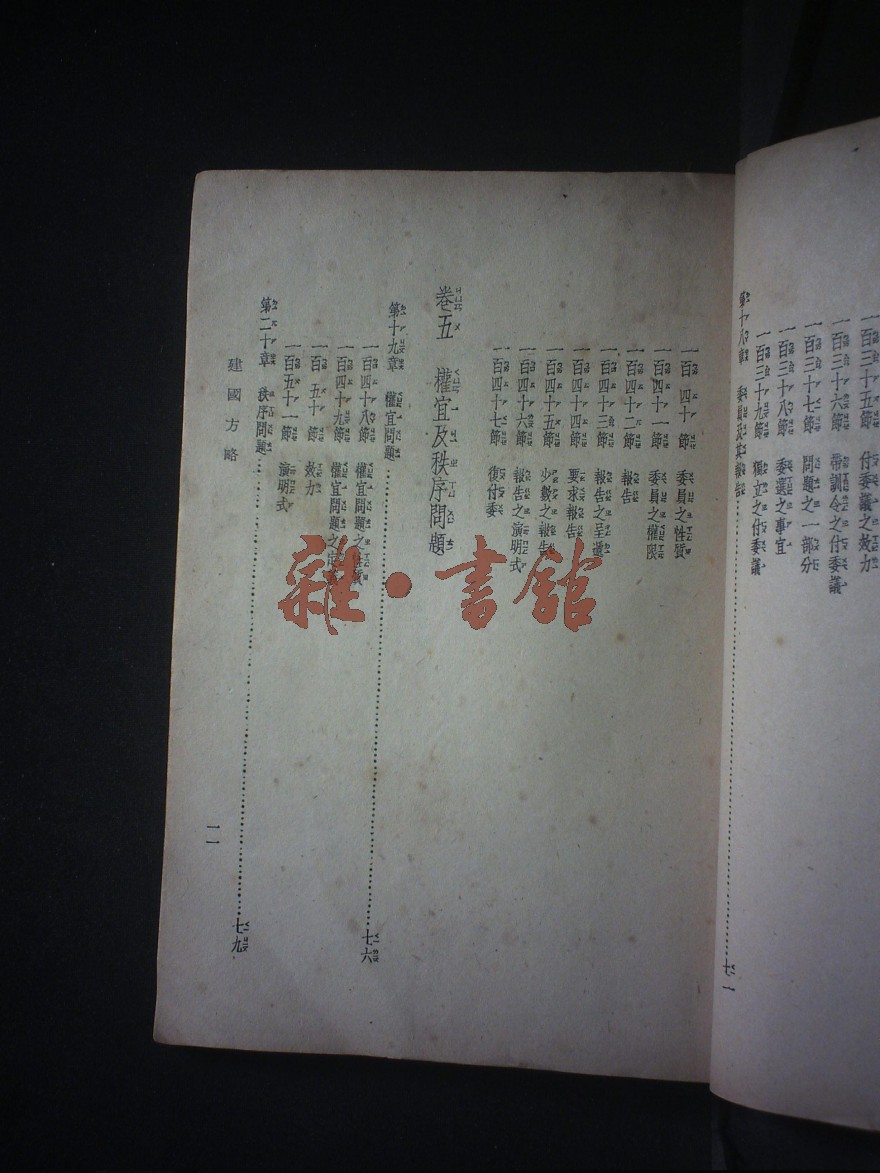 一百三十五節 付委議之效力
一百三十六節 帶訓令之付委議
一百三十七節 問題之一部分
一百三十八節 委選之事宜
一百三十九節 獨立之付委議
第十八章 委員及其報告 七一
一百四十節 委員之性質
一百四十一節 委員之權限
一百四十二節 報告
一百四十三節 報告之呈遞
一百四十四節 要求報告
一百四十五節 少數之報告
一百四十六節 報告之演明式
一百四十七節 復付委
卷五 權宜及秩序問題
第十九章 權宜問題 七六
一百四十八節 權宜問題之性質
一百四十九節 權宜問題之定
一百五十節 效力
一百五十一節 演明式
第二十章 秩序問題 七九
建國方略
一一
雜·書館